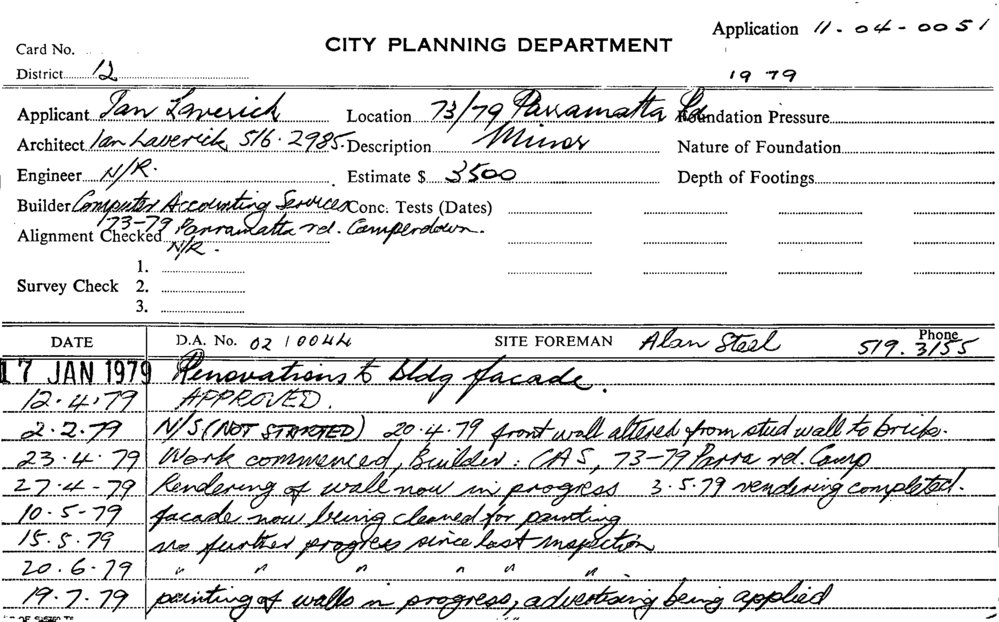 Application 11-04-0051
Card No.
CITY PLANNING DEPARTMENT
District 12
1979
Applicant Ian Laverick Location 73/79 Parramatta Rd Foundation Pressure
Architect Ian Laverick 516.2985. Description Minor Nature of Foundation
Engineer N/R. Estimate $ 3500 Depth of Footings
Builder Computer Accounting Services Conc. Tests (Dates)
73-79 Parramatta rd. Camperdown.
Alignment Checked N/R.
1.
Survey Check 2.
3.
DATE D.A. No. 02/0044 SITE FOREMAN Alan Steel Phone 519.3155
17 JAN 1979 Renovations to bldg facade.
12.4.79 APPROVED.
2.2.79 N/S (NOT STARTED) 20.4.79 front wall altered from stud wall to brick.
23.4.79 Work commenced, Builder: CAS, 73-79 Parra rd. Camp
27.4-79 Rendering of wall now in progress 3.5.79 rendering completed.
10.5-79 facade now being cleaned for painting
15.5.79 no further progress since last inspection
20.6.79 " " " " " "
19.7.79 painting of walls in progress, advertising being applied